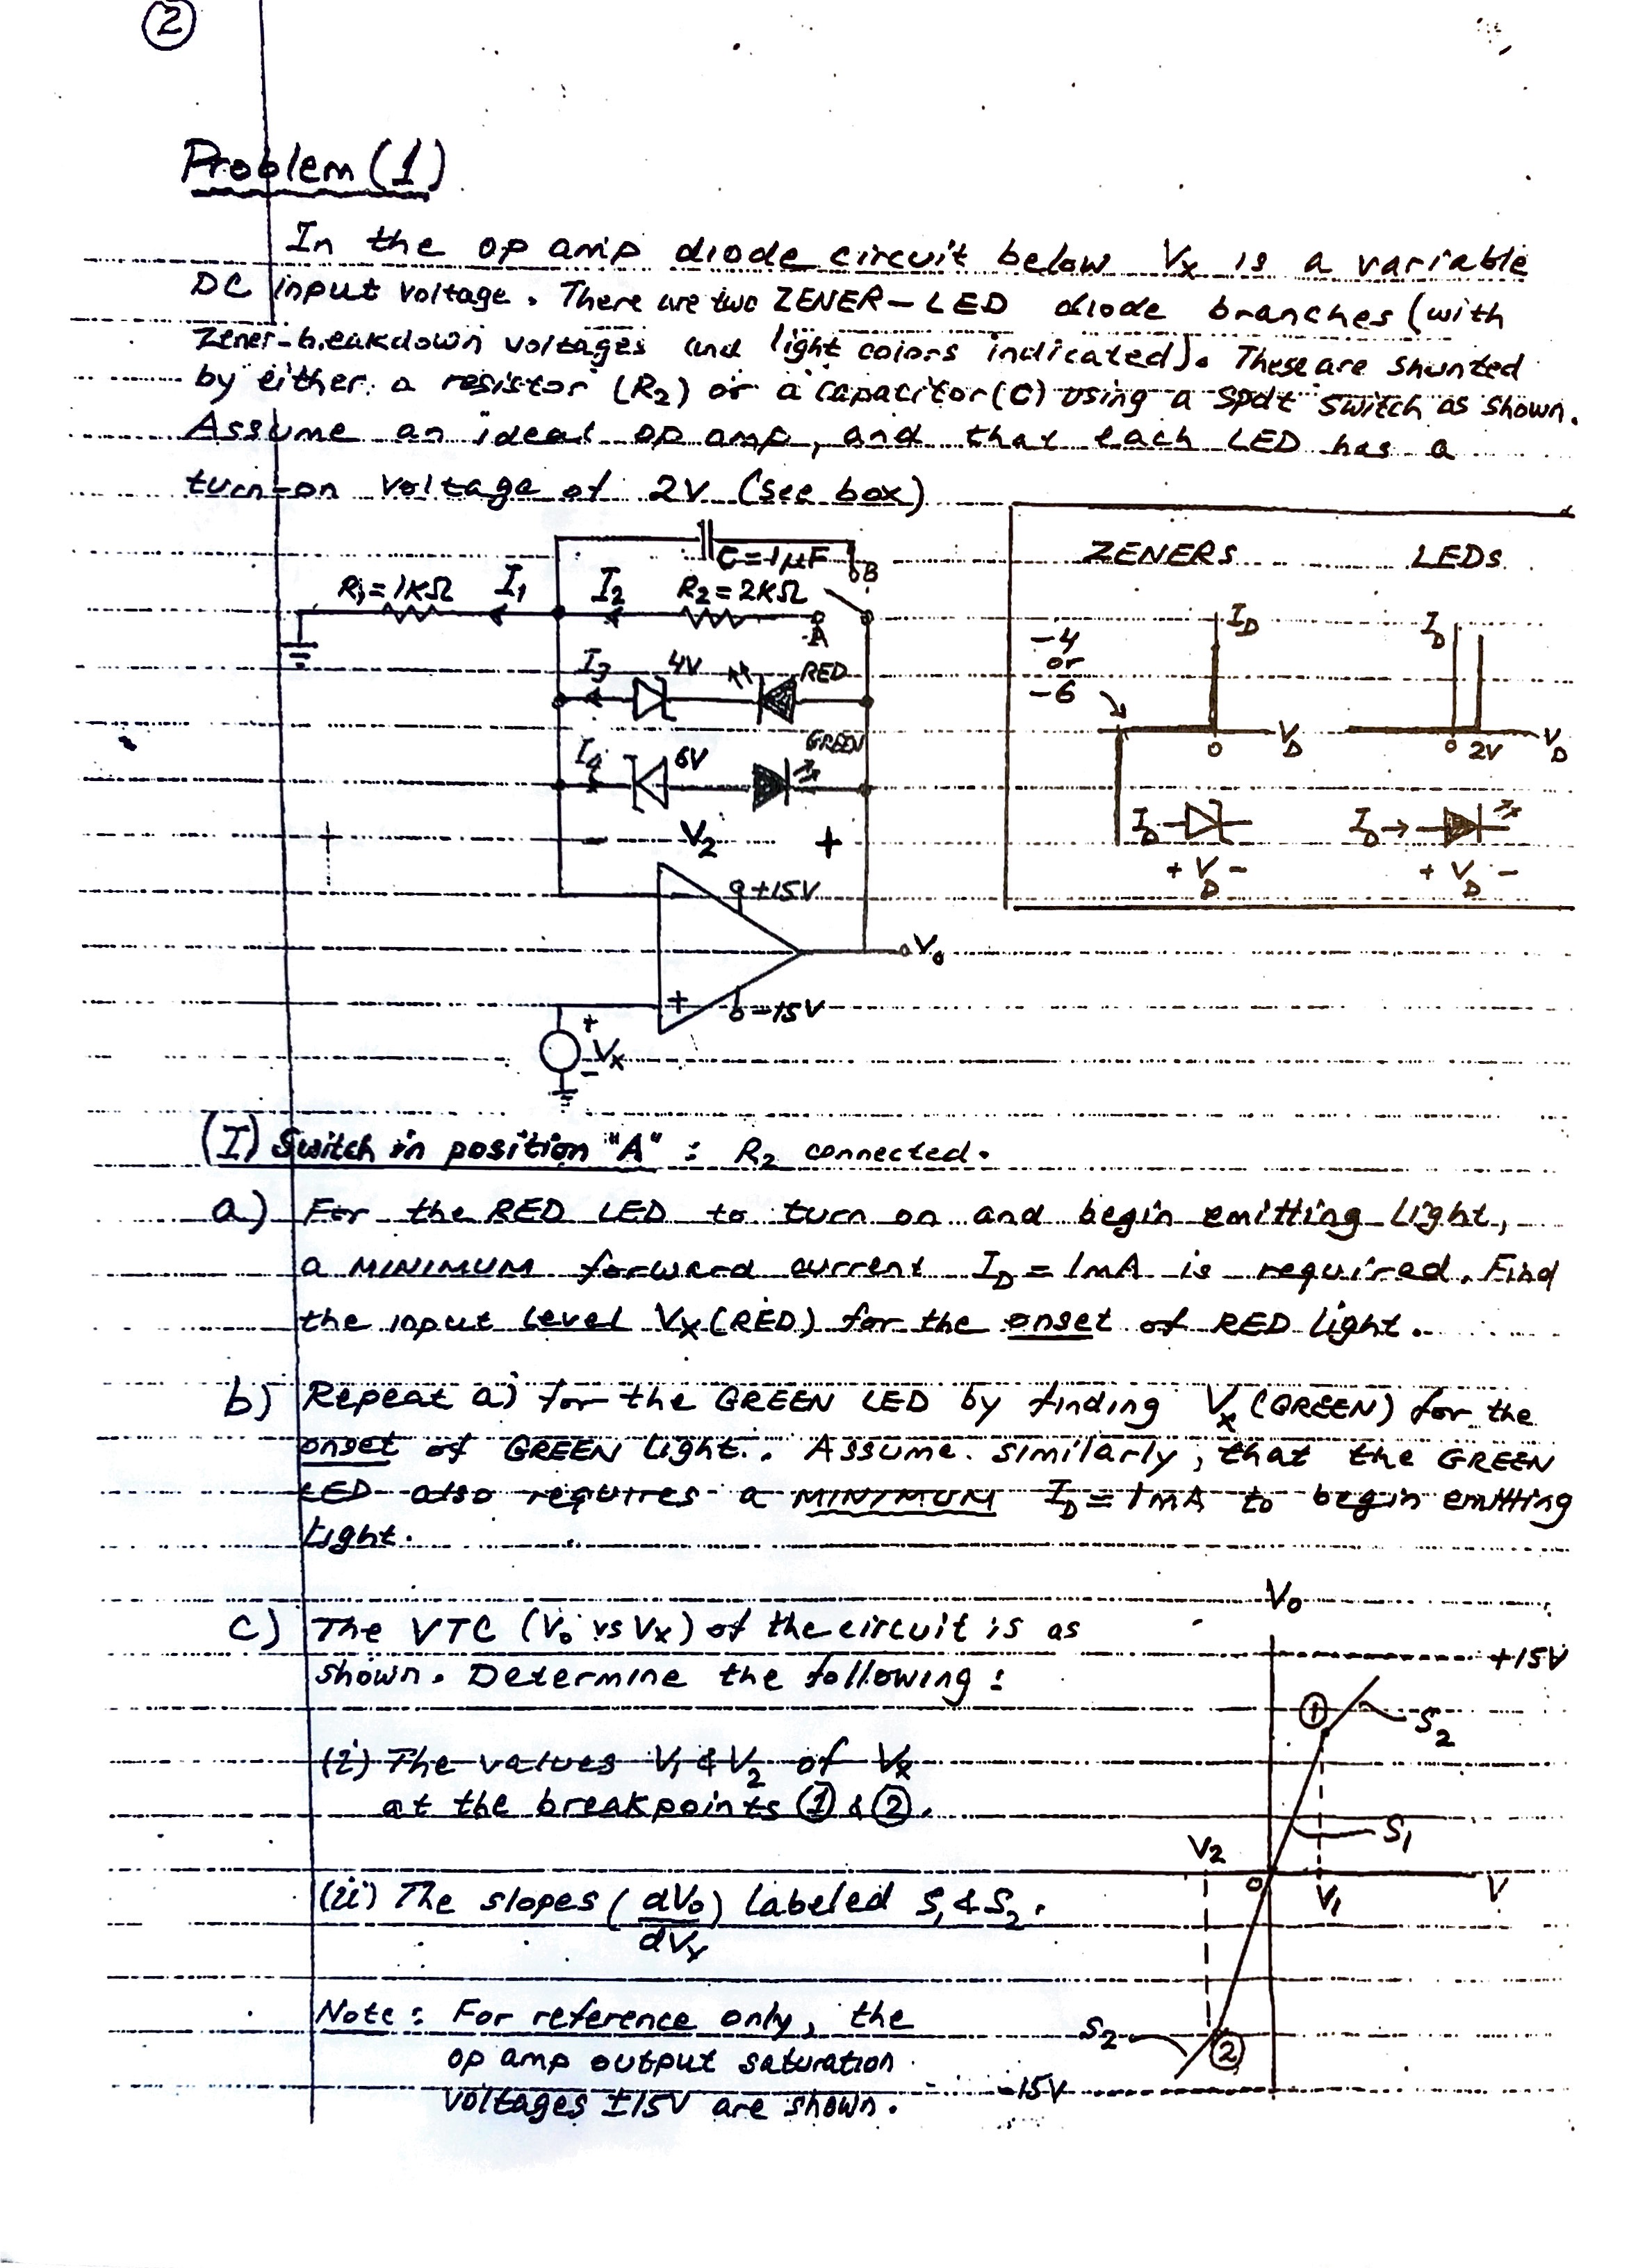 2
Problem (1)
In the op amp diode circuit below Vx is a variable
DC input voltage. There are two ZENER-LED diode branches (with
Zener-breakdown voltages and light colors indicated). These are shunted
by either a resistor (R2) or a capacitor (C) using a spdt switch as shown.
Assume an ideal op amp, and that each LED has a
turn-on voltage of 2V (see box)
C=1μF
B
R1=1KΩ I1 I2 R2=2KΩ
A
I3 4V RED
I4 6V GREEN
- V2 +
+15V
V0
+ -15V
+ Vx -
ZENERS LEDs
-4 or -6
ID ID
0 VD 0 2V VD
ID ID→
+ VD - + VD -
(I) Switch in position "A" : R2 connected.
a) For the RED LED to turn on and begin emitting light,
a MINIMUM forward current ID = 1mA is required. Find
the input level Vx(RED) for the onset of RED light.
b) Repeat a) for the GREEN LED by finding Vx (GREEN) for the
onset of GREEN light. Assume similarly, that the GREEN
LED also requires a MINIMUM ID = 1mA to begin emitting
light.
c) The VTC (V0 vs Vx) of the circuit is as
shown. Determine the following:
(i) The values V1 & V2 of Vx
at the breakpoints ① & ②.
(ii) The slopes (dV0/dVx) labeled S1 & S2.
Note: For reference only, the
op amp output saturation
voltages ±15V are shown.
V0
+15V
① S2
S1
V2
0 V1 V
S2 ②
-15V